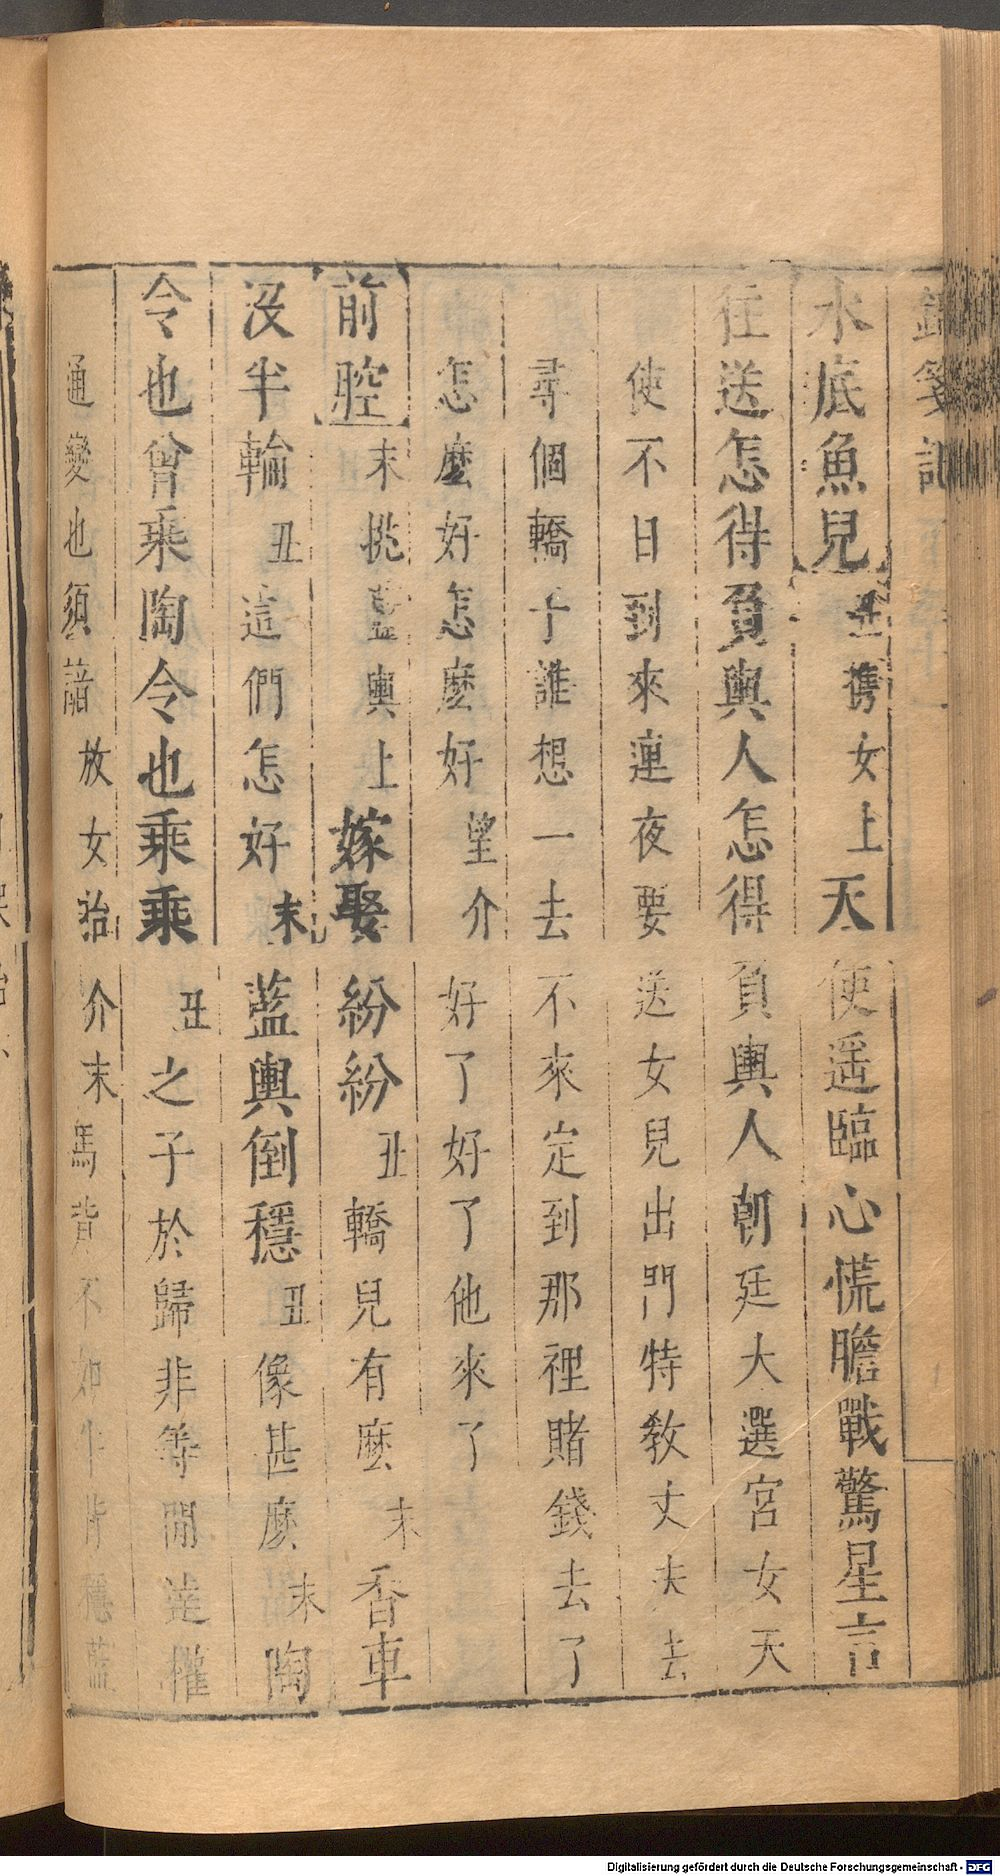 錦箋記
水底魚兒丑攜女上天使遥臨心慌膽戰驚星言
往送怎得負輿人怎得負輿人朝廷大選宮女天
使不日到來連夜要送女兒出門特教丈夫去
尋個轎子誰想一去不來定到那裡賭錢去了
怎麼好怎麼好望介好了好了他來了
前腔末挑藍輿上嫁娶紛紛丑轎兒有麼末香車
沒半輪丑這們怎好末藍輿倒穩丑像甚麼末陶
令也曾乘陶令也乘乘丑之子於歸非等閒達權
通變也須諳放女抬介末馬背不如牛背穩藍
Digitalisierung gefördert durch die Deutsche Forschungsgemeinschaft - DFG